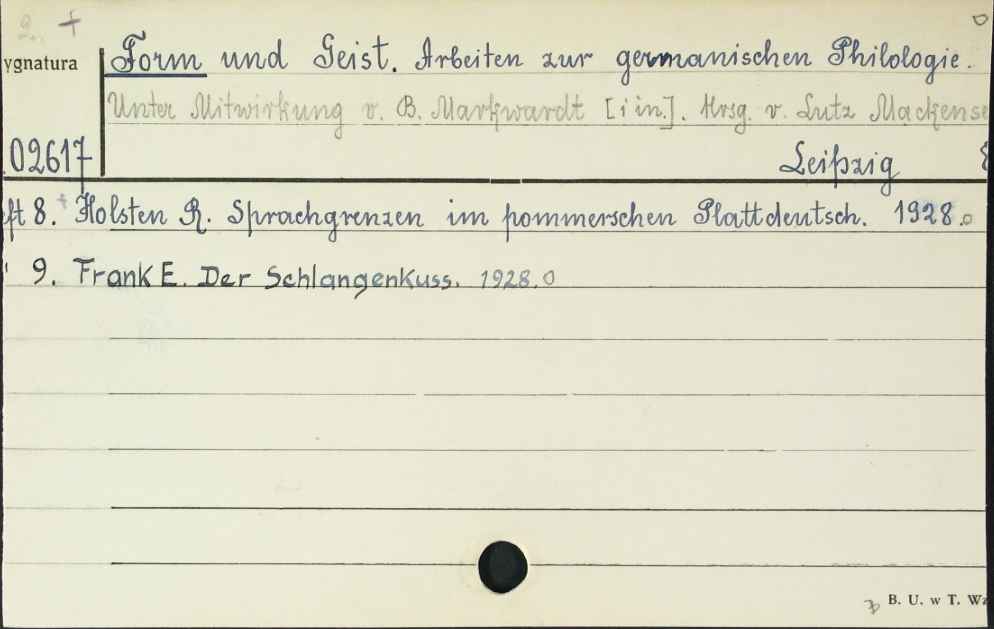 2. +
ygnatura
Form und Geist. Arbeiten zur germanischen Philologie.
Unter Mitwirkung v. B. Markwardt [i in.]. Hrsg. v. Lutz Mackense
02617
Leipzig 8
ft 8. + Holsten R. Sprachgrenzen im pommerschen Plattdeutsch. 1928.
9. Frank E. Der Schlangenkuss. 1928.
B. U. w T.